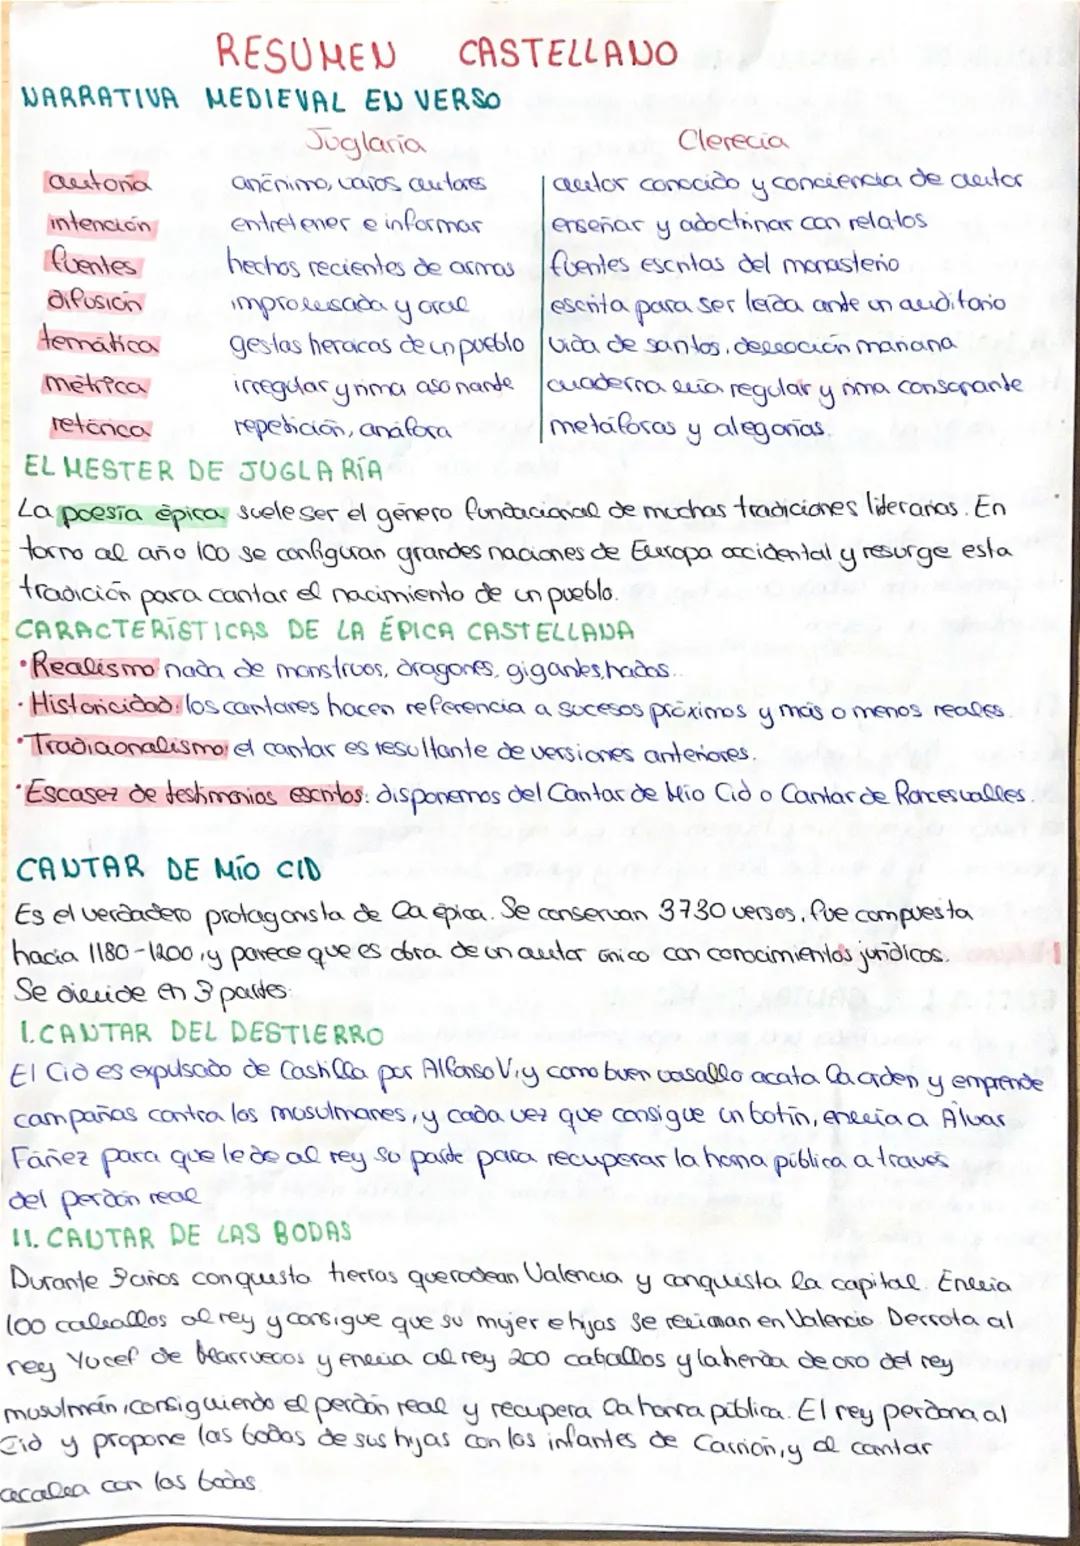 RESUMEN CASTELLANO
NARRATIVA MEDIEVAL EN VERSO
Juglaría Clerecía
autoría anónimo, varios autores autor conocido y conciencia de autor
intención entretener e informar enseñar y adoctrinar con relatos
fuentes hechos recientes de armas fuentes escritas del monasterio
difusión improvisada y oral escrita para ser leída ante un auditorio
temática gestas heroicas de un pueblo vida de santos, devoción mariana
métrica irregular y rima asonante cuaderna vía regular y rima consonante
retórica repetición, anáfora metáforas y alegorías.
EL MESTER DE JUGLARÍA
La poesía épica suele ser el género fundacional de muchas tradiciones literarias. En
torno al año 100 se configuran grandes naciones de Europa occidental y resurge esta
tradición para cantar el nacimiento de un pueblo.
CARACTERÍSTICAS DE LA ÉPICA CASTELLANA
·Realismo nada de monstruos, dragones, gigantes, hadas...
·Historicidad: los cantares hacen referencia a sucesos próximos y más o menos reales.
·Tradicionalismo: el cantar es resultante de versiones anteriores.
·Escasez de testimonios escritos: disponemos del Cantar de Mio Cid o Cantar de Roncesvalles.
CANTAR DE MÍO CID
Es el verdadero protagonista de la épica. Se conservan 3730 versos, fue compuesta
hacia 1180-1200, y parece que es obra de un autor único con conocimientos jurídicos.
Se divide en 3 partes:
I. CANTAR DEL DESTIERRO
El Cid es expulsado de Castilla por Alfonso VI y como buen vasallo acata la orden y emprende
campañas contra los musulmanes, y cada vez que consigue un botín, envía a Álvar
Fáñez para que le de al rey su parte para recuperar la honra pública a través
del perdón real
II. CANTAR DE LAS BODAS
Durante 3 años conquista tierras que rodean Valencia y conquista la capital. Envía
100 caballos al rey y consigue que su mujer e hijas se reúnan en Valencia Derrota al
rey Yucef de Marruecos y envía al rey 200 caballos y la tienda de oro del rey
musulmán, consiguiendo el perdón real y recupera la honra pública. El rey perdona al
Cid y propone las bodas de sus hijas con los infantes de Carrión, y el cantar
acaba con las bodas